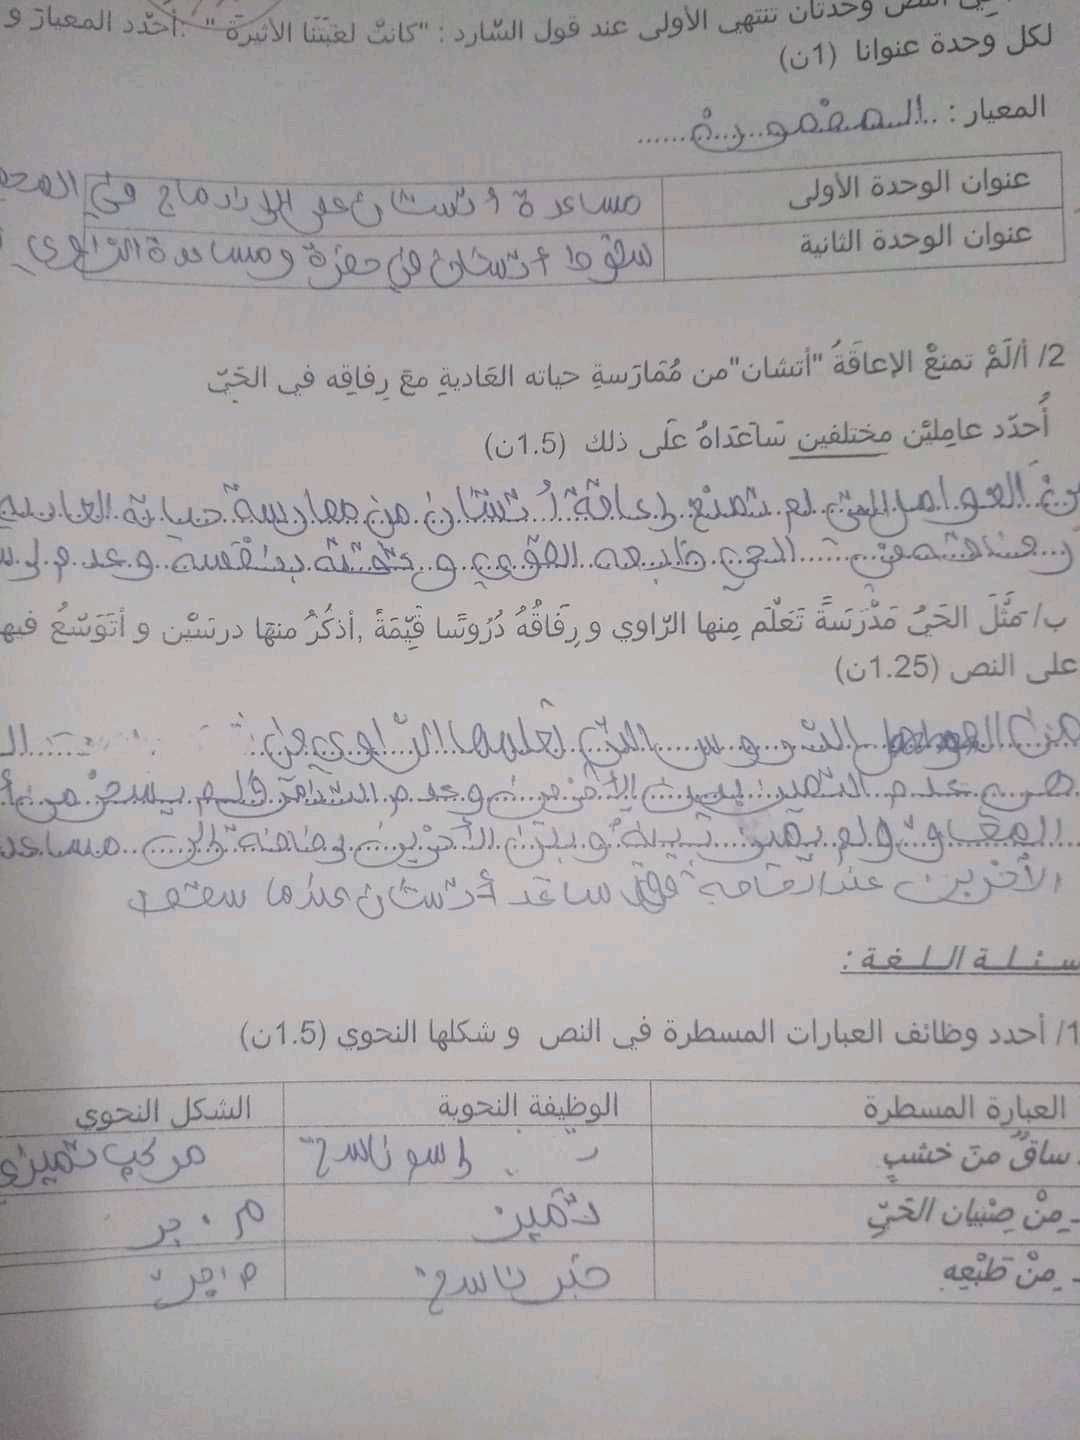 النص وحدتان تنتهي الأولى عند قول السّارد : "كانتْ لعْبَتَنَا الأثيرَةَ" .أحَدّد المعيارَ و
لكل وحدة عنوانا (1ن)
المعيار : ..المضمون..........
عنوان الوحدة الأولى مساعدة أتشان على الاندماج في
عنوان الوحدة الثانية سقوط أتشان في حفرة ومساعدة الراوي
2/ أ/لَمْ تمنعْ الإعاقَةُ "أتشان"من مُمَارَسةِ حياته العَاديةِ معَ رِفاقِه في الحَيّ
أُحدّد عامِليْن مختلفين سَاعَدَاهُ عَلَى ذلك (1.5ن)
من العوامل التي لم تمنع إعاقة أتشان من ممارسة حياته العادية
الحي طابعه القوي و ثقته بنفسه وعدم
ب/مَثَّلَ الحَيُ مَدْرَسَةً تَعَلَّمَ مِنها الرّاوي و رِفَاقُهُ دُرُوسًا قيِّمَةً ,أذكُرُ منهَا درسَيْن و أتَوَسّعُ فيها
على النص (1.25ن)
من الدروس التي تعلمها الراوي من
هي عدم التميز بين الأخرين وعدم التنمر فلم يسخر من
المعاق ولم يميز بينه و بين الأخرين إضافة إلى مساعدة
الأخرين عند فقد ساعد أتشان عندما سقط
سئلة اللغة :
1/ أحدد وظائف العبارات المسطرة في النص و شكلها النحوي (1.5ن)
العبارة المسطرة الوظيفة النحوية الشكل النحوي
ساقٌ منَ خشبٍ إسم ناسخ مركب تميزي
ـ مِنْ صِبْيان الحَيّ تميز م . جر
ـ مِنْ طَبْعِهِ خبر ناسخ م . جر